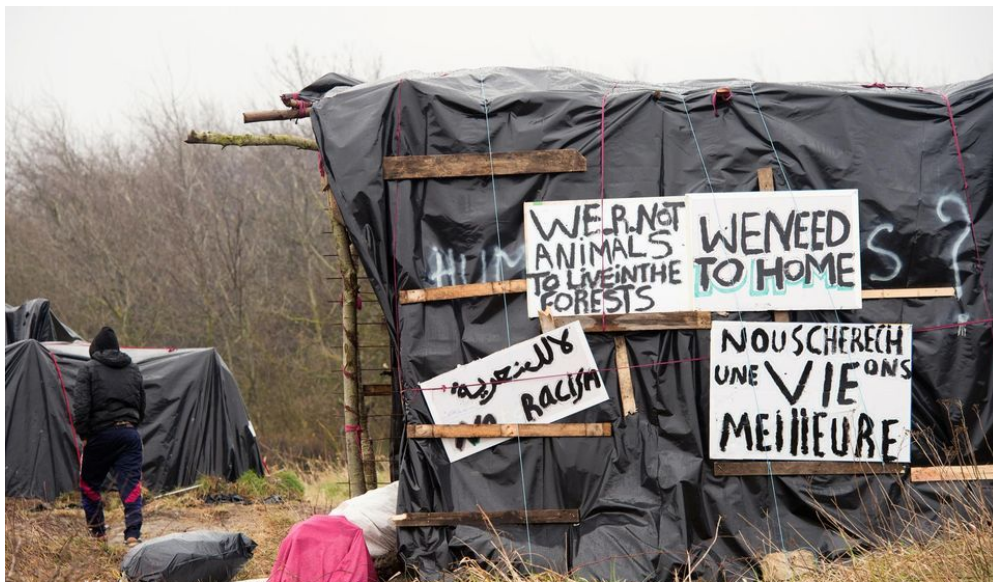 HUM
S ?
WE.R.NOT
ANIMALS
TO LIVE IN THE
FORESTS
WE NEED
TO HOME
لا للعنصرية
NO RACISM
NOUS CHERECH
UNE VIE ONS
MEIllEURE